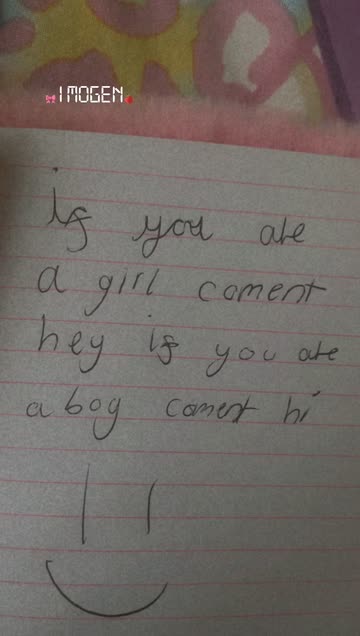 🎀IMOGEN🍓
if you are
a girl coment
hey if you are
a boy coment hi